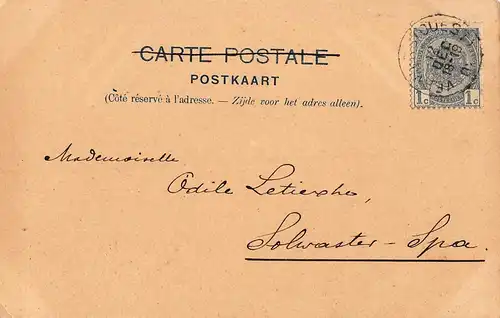 CARTE POSTALE
POSTKAART
(Côté réservé à l'adresse. — Zijde voor het adres alleen).
1c 1c
Mademoiselle
Odile Letierche,
Solwaster - Spa.